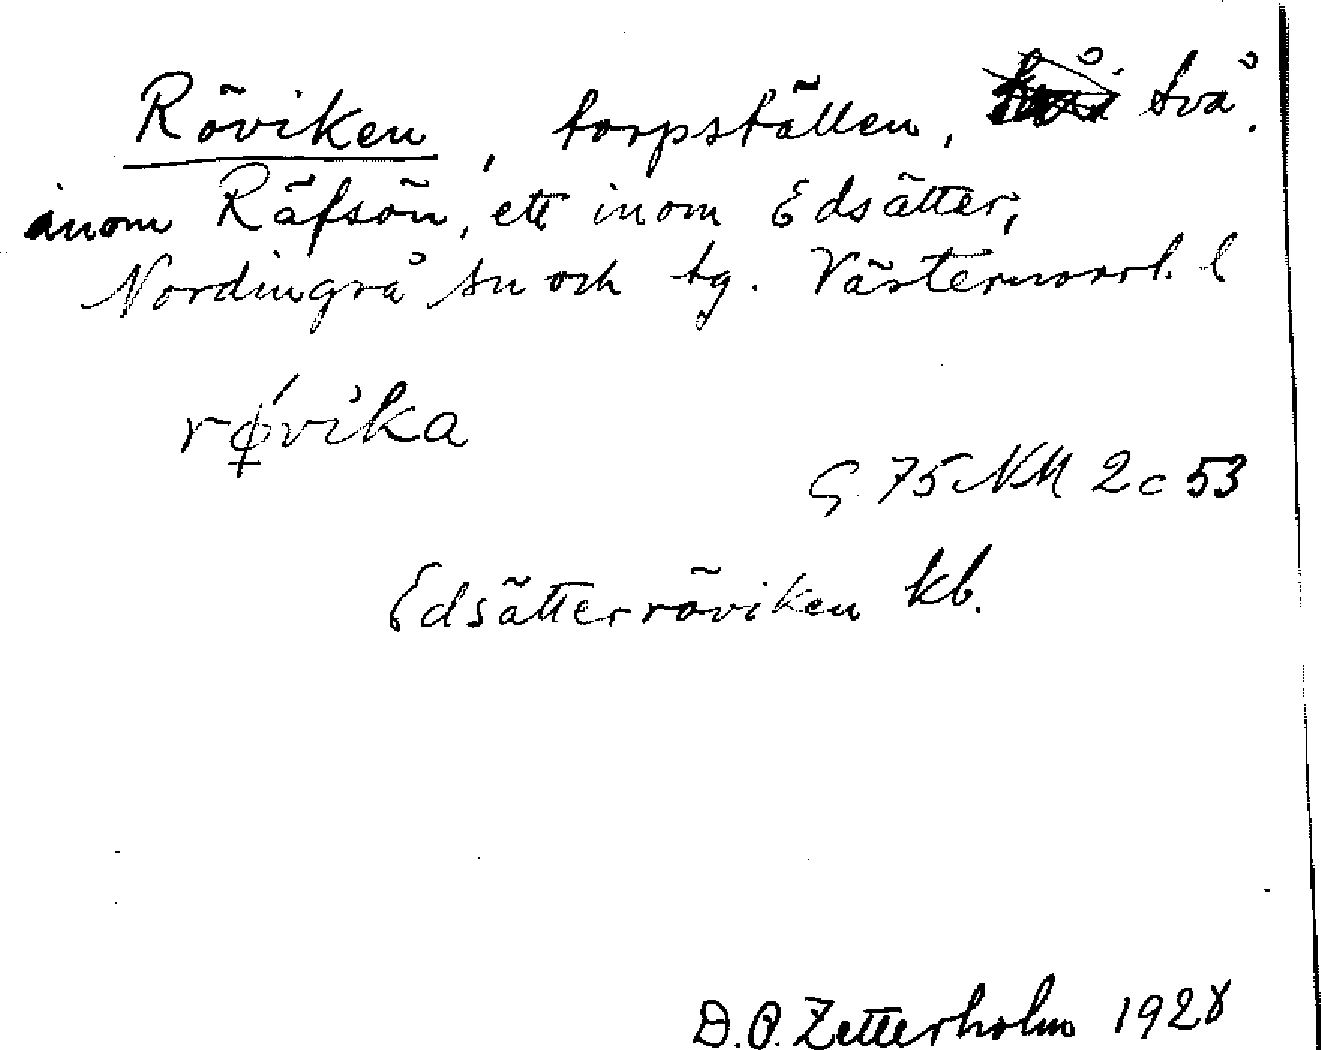 Röviken, torpställen, två
inom Räfsön, ett inom Edsätter,
Nordingrå sn och tg. Västernorrl. l
rǿ̨vika
G. 75 NM 2c 53
Edsätterröviken kb.
D.O. Zetterholm 1928